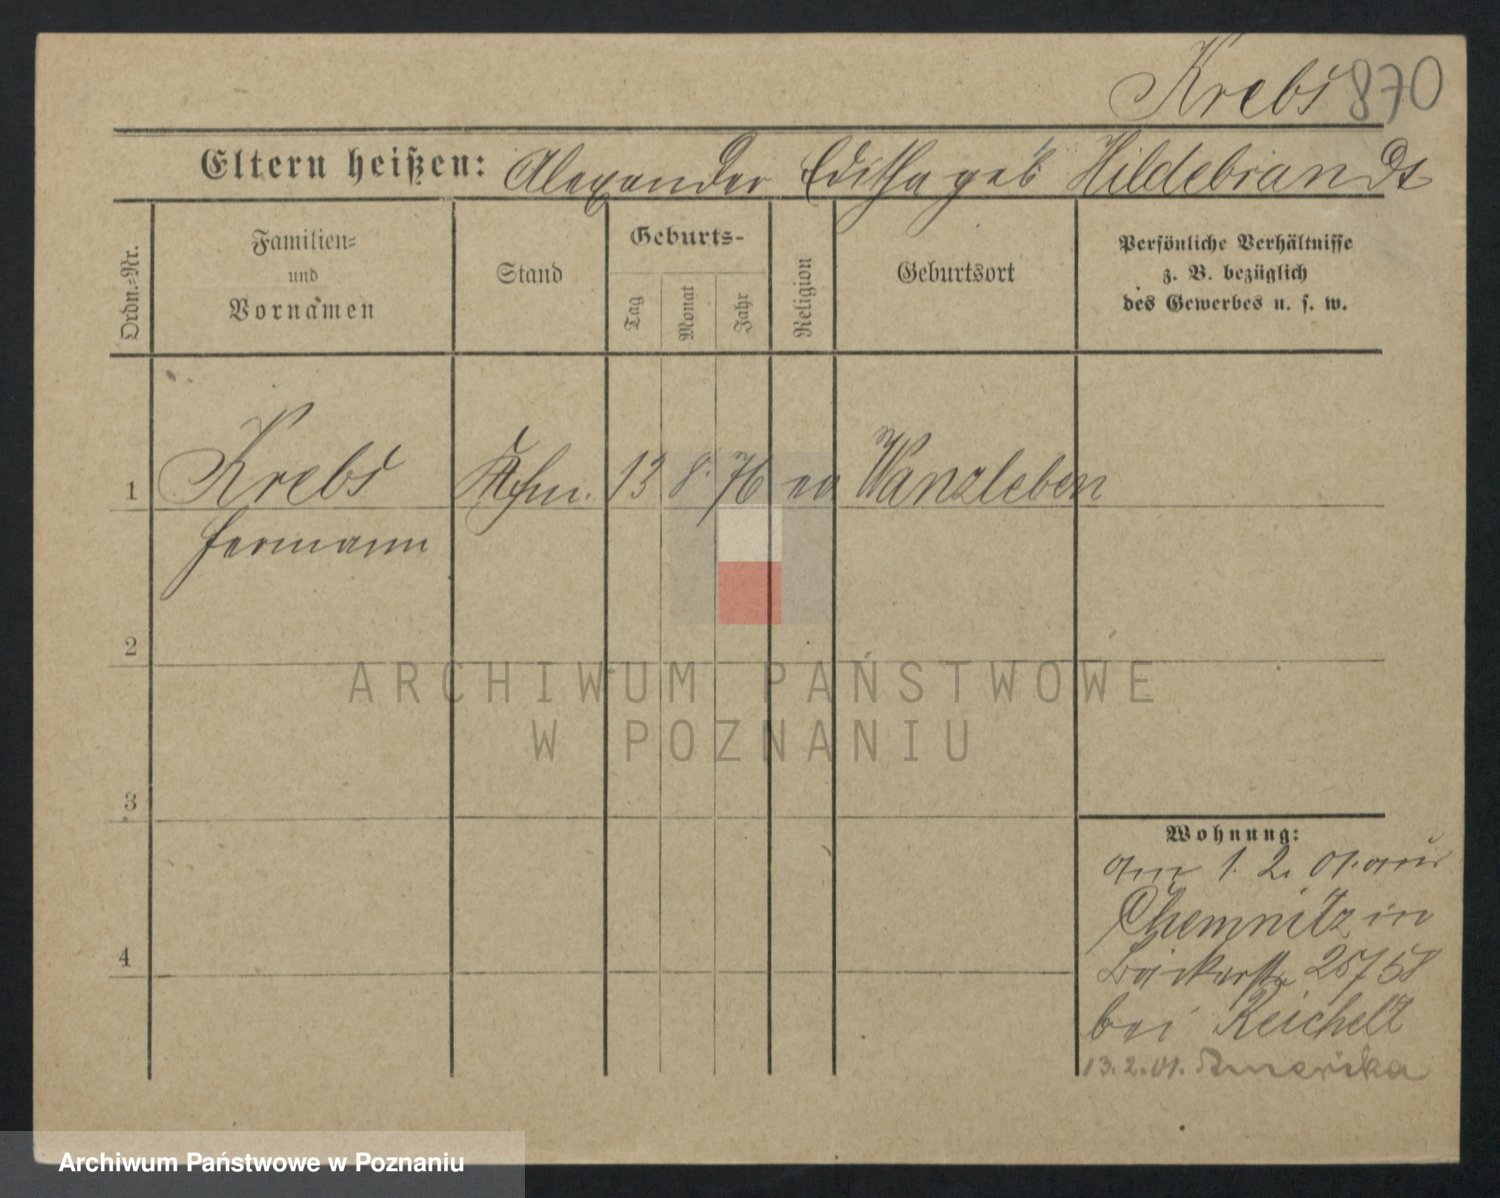 Krebs 870
Eltern heißen: Alexander Editha geb Hildebrandt
Ordn.-Nr.
Familien-
und
Vornamen
Stand
Geburts-
Tag
Monat
Jahr
Religion
Geburtsort
Persönliche Verhältnisse
z. B. bezüglich
des Gewerbes u. s. w.
1 Krebs Kfm. 13 8. 76 ev Wanzleben
Hermann
2
3
4
Wohnung:
am 1. 2. 01. aus
Chemnitz in
Bäckerstr
bei Reichelt
13. 2. 01. Amerika
ARCHIWUM PAŃSTWOWE
W POZNANIU
Archiwum Państwowe w Poznaniu